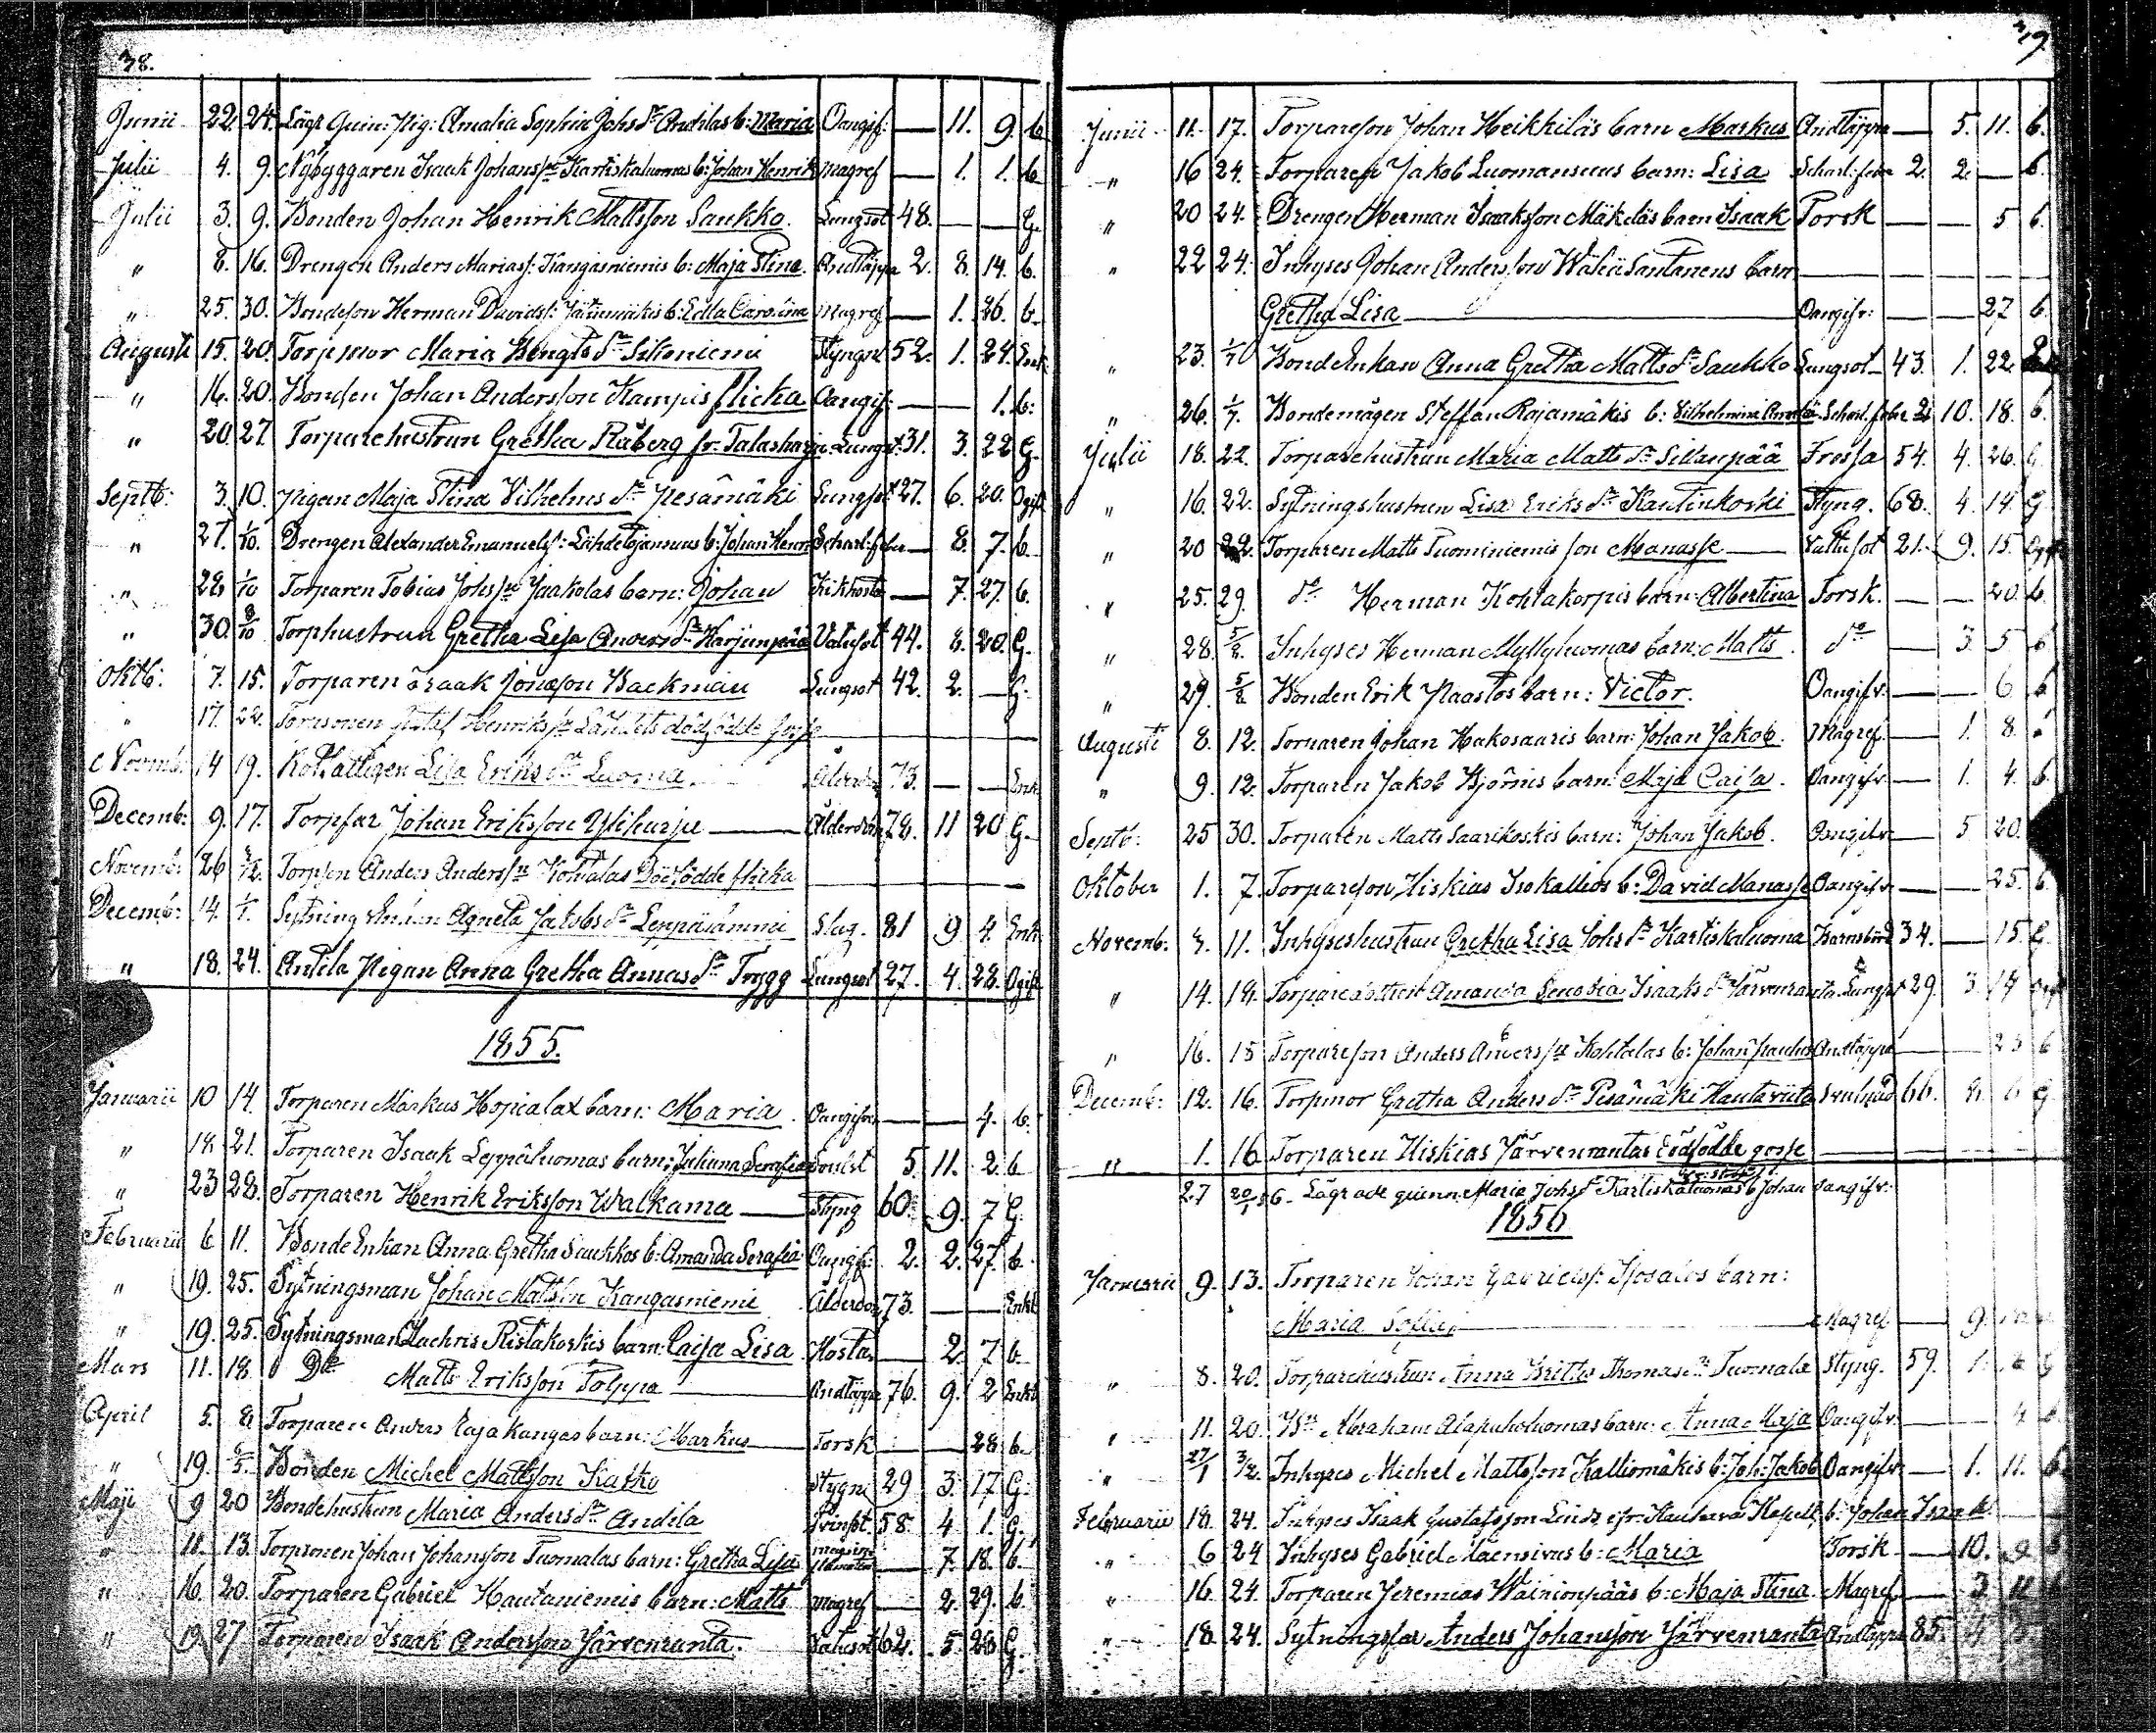 38.
Junii 22. 24. Lägr. Quin: Pig: Amalia Sophia Johs dr Andilas b: Maria Oangif: — 11. 9. b
Julii 4. 9. Nybyggaren Isaak Johans sn Kartiskaluomas b: Johan Henrik Magref — 1. 1. b
Julii 3. 9. Bonden Johan Henrik Mattsson Saukko. Lungsot 48. — — G.
" 8. 16. Drengen Anders Mariass: Kangasniemis b: Maja Stina. Andtäppa 2. 8. 14. b.
" 25. 30. Bondeson Herman Davidss: b: Edla Carolina Magref — 1. 26. b.
Augusti 15. 20. Torpmor Maria Bengts dr Sikoniemi Styngn 52. 1. 24. Enk:
" 16. 20. Bonden Johan Andersson Kampis flicka Oangif: — — 1. b:
" 20 27. Torparehustrun Gretha Råberg fr: Talasharju Lungst: 31. 3. 22 G.
Septb: 3. 10. Pigan Maja Stina Vilhelms dr Pesämäki Lungsot 27. 6. 20. Ogift
" 27. 1/10. Drengen Alexander Emanuelss: b: Johan Henr Scharl:feber — 8. 7. b
" 28 1/10 Torparen Tobias Johs sn Jaakolas barn: Johan Kikhosta — 7. 27. b.
" 30. 8/10 Torphustrun Gretha Lisa Anders dr Harjunpää Vatusot 44. 8. 20. G.
Oktb: 7. 15. Torparen Isaak Jonasson Backman Lungsot 42. 2. — G.
" 17. 22. Torpsonen Gustaf Henriks sn dödfödde gosse
Novemb: 14 19. Rotfattigen Lisa Eriks dr Luoma. Ålderdm 73. — — Enk.
Decemb: 9. 17. Torpfar Johan Eriksson Ylikarju — Ålderdom 78. 11 20 G.
Novemb: 26 3/12. Torpson Anders Anders sn Kohtalas Dödfödde flicka
Decemb: 14. 1/1. Sytning Enkan Agneta Jakobs dr Leppäsammi Slag. 81 9 4. Enk
" 18. 24. Andila Pigan Anna Gretha Annas dr Trygg Lungsot 27. 4. 28. Ogift
1855.
Januarii 10 14. Torparen Markus Hopialax barn: Maria. Oangifven — — 4. b.
" 18 21. Torparen Isaak Leppäluomas barn: Juliana Serafia 5. 11. 2. b
" 23 28. Torparen Henrik Eriksson Walkama — Styng 60. 9. 7 G.
Februarii 6 11. Bonde Enkan Anna Gretha Saukkos b: Amanda Serafia Oangif: 2. 2. 27. b.
" 19. 25. Sytningsman Johan Mattsson Kangasniemi Ålderdom 73. — — Enkl
" 19. 25. Sytningsman Zachris Ristakoskis barn: Caisa Lisa Hosta — 2. 7 b.
Mars 11. 18. Do Matts Eriksson Poippa Andtäppa 76. 9. 2 Enkl
April 5. 8 Torparen Anders Rajakangas barn: Markus Torsk — 28 b.
" 19. 6/5. Bonden Michel Mattsson Katko Stygn 29 3. 17 G.
Maji 9 20 Bondehustrun Maria Anders dr Andila 58. 4 1. G.
" 11. 13. Torpsonen Johan Johansson Tuomalas barn: Gretha Lisa — 7. 18. b.
" 16. 20. Torparen Gabriel Hautaniemis barn: Matts Magref — 2. 29. b.
" 19. 27 Torparen Isaak Andersson Järvenranta. Vatusot 62. 5. 26 G.
39
Junii 11. 17. Torpareson Johan Heikkiläs barn Markus Andtäppa — 5. 11. b.
" 16 24. Torparen Jakob Luomansuus barn: Lisa Scharl:feber 2. 2. — b.
" 20 24. Drengen Herman Isaaksson Mäkeläs barn Isaak Torsk — — 5 b.
" 22 24. Inhyses Johan Andersson WäliäSantanens barn
Gretha Lisa — Oangifv: — — 27 b.
" 23. 1/7 BondeEnkan Anna Gretha Matts dr Saukko Lungsot 43. 1. 22
" 26. 1/7. Bondemågen Steffan Rajamäkis b: Vilhelmina Scharl. feber 2 10. 18. b.
Julii 18. 22. Torparehustrun Maria Matts dr Sillanpää Frossa 54. 4. 26. G
" 16. 22. Sytningshustrun Lisa Eriks dr Kautinkoski Styng. 68. 4 14 G
" 20 22. Torparen Matts Tuominiemis son Manasse — Vattusot 21. 9. 15. Ogift
" 25. 29. do Herman Kohtakorpis barn: Albertina Torsk. — — 20. b.
" 28. 5/8. Inhyses Herman Myllyluomas barn: Matts. do — 3. 5 b
" 29. 5/8 Bonden Erik Paastos barn: Victor. Oangifv: — — 6 b
Augusti 8. 12. Torparen Johan Hakosaaris barn: Johan Jakob. Magref — 1. 8.
" 9. 12. Torparen Jakob Björnis barn: Maja Caisa. Oangifv — 1. 4. b.
Septb: 25 30. Torparen Matts Saarikoskis barn: Johan Jakob. Oangifv — 5 20.
Oktober 1. 7. Torpareson Hiskias Isokallios b: David Manasse Oangifv — — 25. b.
Novemb. 3. 11. Inhyseshustrun Gretha Lisa Johs dr Kartiskaluoma Barnsbörd 34. — 15. G.
" 14. 18. Torparedottren Amanda Senobia Isaaks dr Järvenranta. Lungsot 29. 3. 14
" 16. 18 Torpareson Anders Anders sn Kohtalas b: Johan Andtäppa — 25 b
Decemb: 12. 16. Torpmor Gretha Anders dr Pesämäki Hautaviita 66. 8. 6 G
" 1. 16 Torparen Hiskias Järvenrantas Dödfödde gosse
27 20/1 56 Lägrade quinn: Maria Johs dr Kartiskaluomas b Johan Oangifv:
1856
Januarii 9. 13. Torparen Johan Gabrielss: barn:
Maria Sofia — Magref — 9.
" 8. 20. Torparehustrun Anna Britha Thomas dr Tuomala Styng. 59. 1.
" 11. 20. Abraham Alapuholuomas barn: Anna Maja Oangifv:
" 27/1 3/2. Inhyses Michel Mattsson Kalliomäkis b: Joh: Jakob Oangifv — 1. 11. b
Februarii 18. 24. Inhyses Isaak Gustafsson Lindz ifr: Kauhava Kapell, b: Johan Isaak
" 6 24 Inhyses Gabriel Mäensivus b: Maria Torsk — 10. 9
" 16. 24. Torparen Jeremias Wainionpääs b: Maja Stina. Magref — 3 11
" 18. 24. Sytningsfar Anders Johansson Järvenranta Andtäppa 85. 4